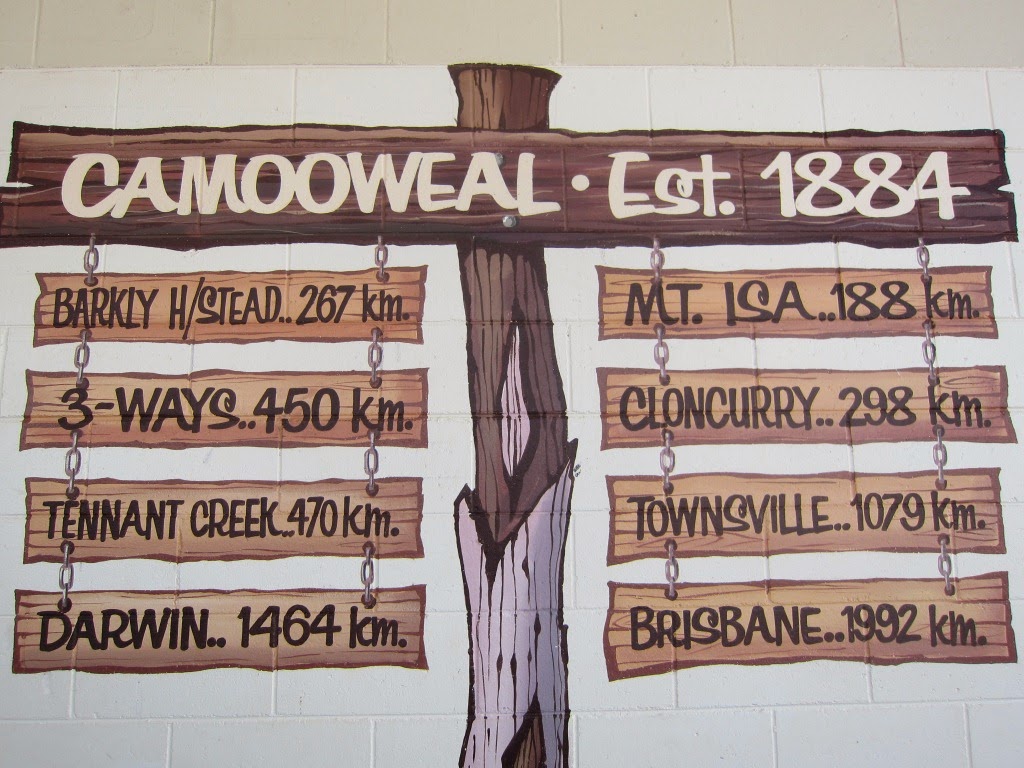 CAMOOWEAL · Est. 1884
BARKLY H/STEAD.. 267 km.
3-WAYS.. 450 km.
TENNANT CREEK.. 470 km.
DARWIN.. 1464 km.
MT. ISA.. 188 km.
CLONCURRY.. 298 km.
TOWNSVILLE.. 1079 km.
BRISBANE.. 1992 km.